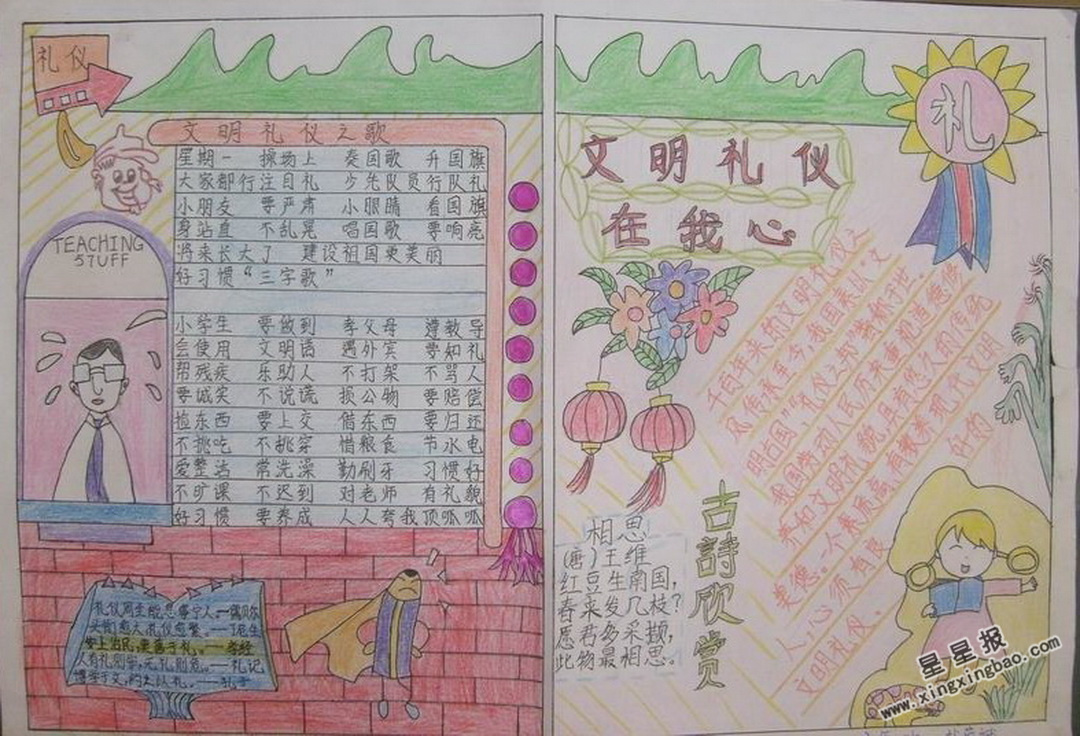 礼仪
文明礼仪之歌
星期一 操场上 奏国歌 升国旗
大家都行注目礼 少先队员行队礼
小朋友 要严肃 小眼睛 看国旗
身站直 不乱晃 唱国歌 要响亮
将来长大了 建设祖国更美丽
好习惯“三字歌”
小学生 要做到 孝父母 遵教导
会使用 文明语 遇外宾 要知礼
帮残疾 乐助人 不打架 不骂人
要诚笑 不说谎 损公物 要赔偿
捡东西 要上交 借东西 要归还
不挑吃 不挑穿 惜粮食 节水电
爱整洁 常洗澡 勤刷牙 习惯好
不旷课 不迟到 对老师 有礼貌
好习惯 要养成 人人夸我顶呱呱
TEACHING
STUFF
安上治民,莫善于礼。——孝经
人有礼则安,无礼则危。——礼记
博学于文,约之以礼。——孔子
礼
文明礼仪
在我心
千百年来的文明礼仪之
风传承自今,我国素以“文
明古国”,“礼仪之邦”著称于世。
我国劳动人民历来重视道德修
养和文明礼貌,这是先人的传统
美德。一个素质高、有教养
人,心须有良好的
文明礼仪。
古詩欣赏
相思
(唐)王维
红豆生南国,
春来发几枝?
愿君多采撷,
此物最相思。
星星报
www.xingxingbao.com